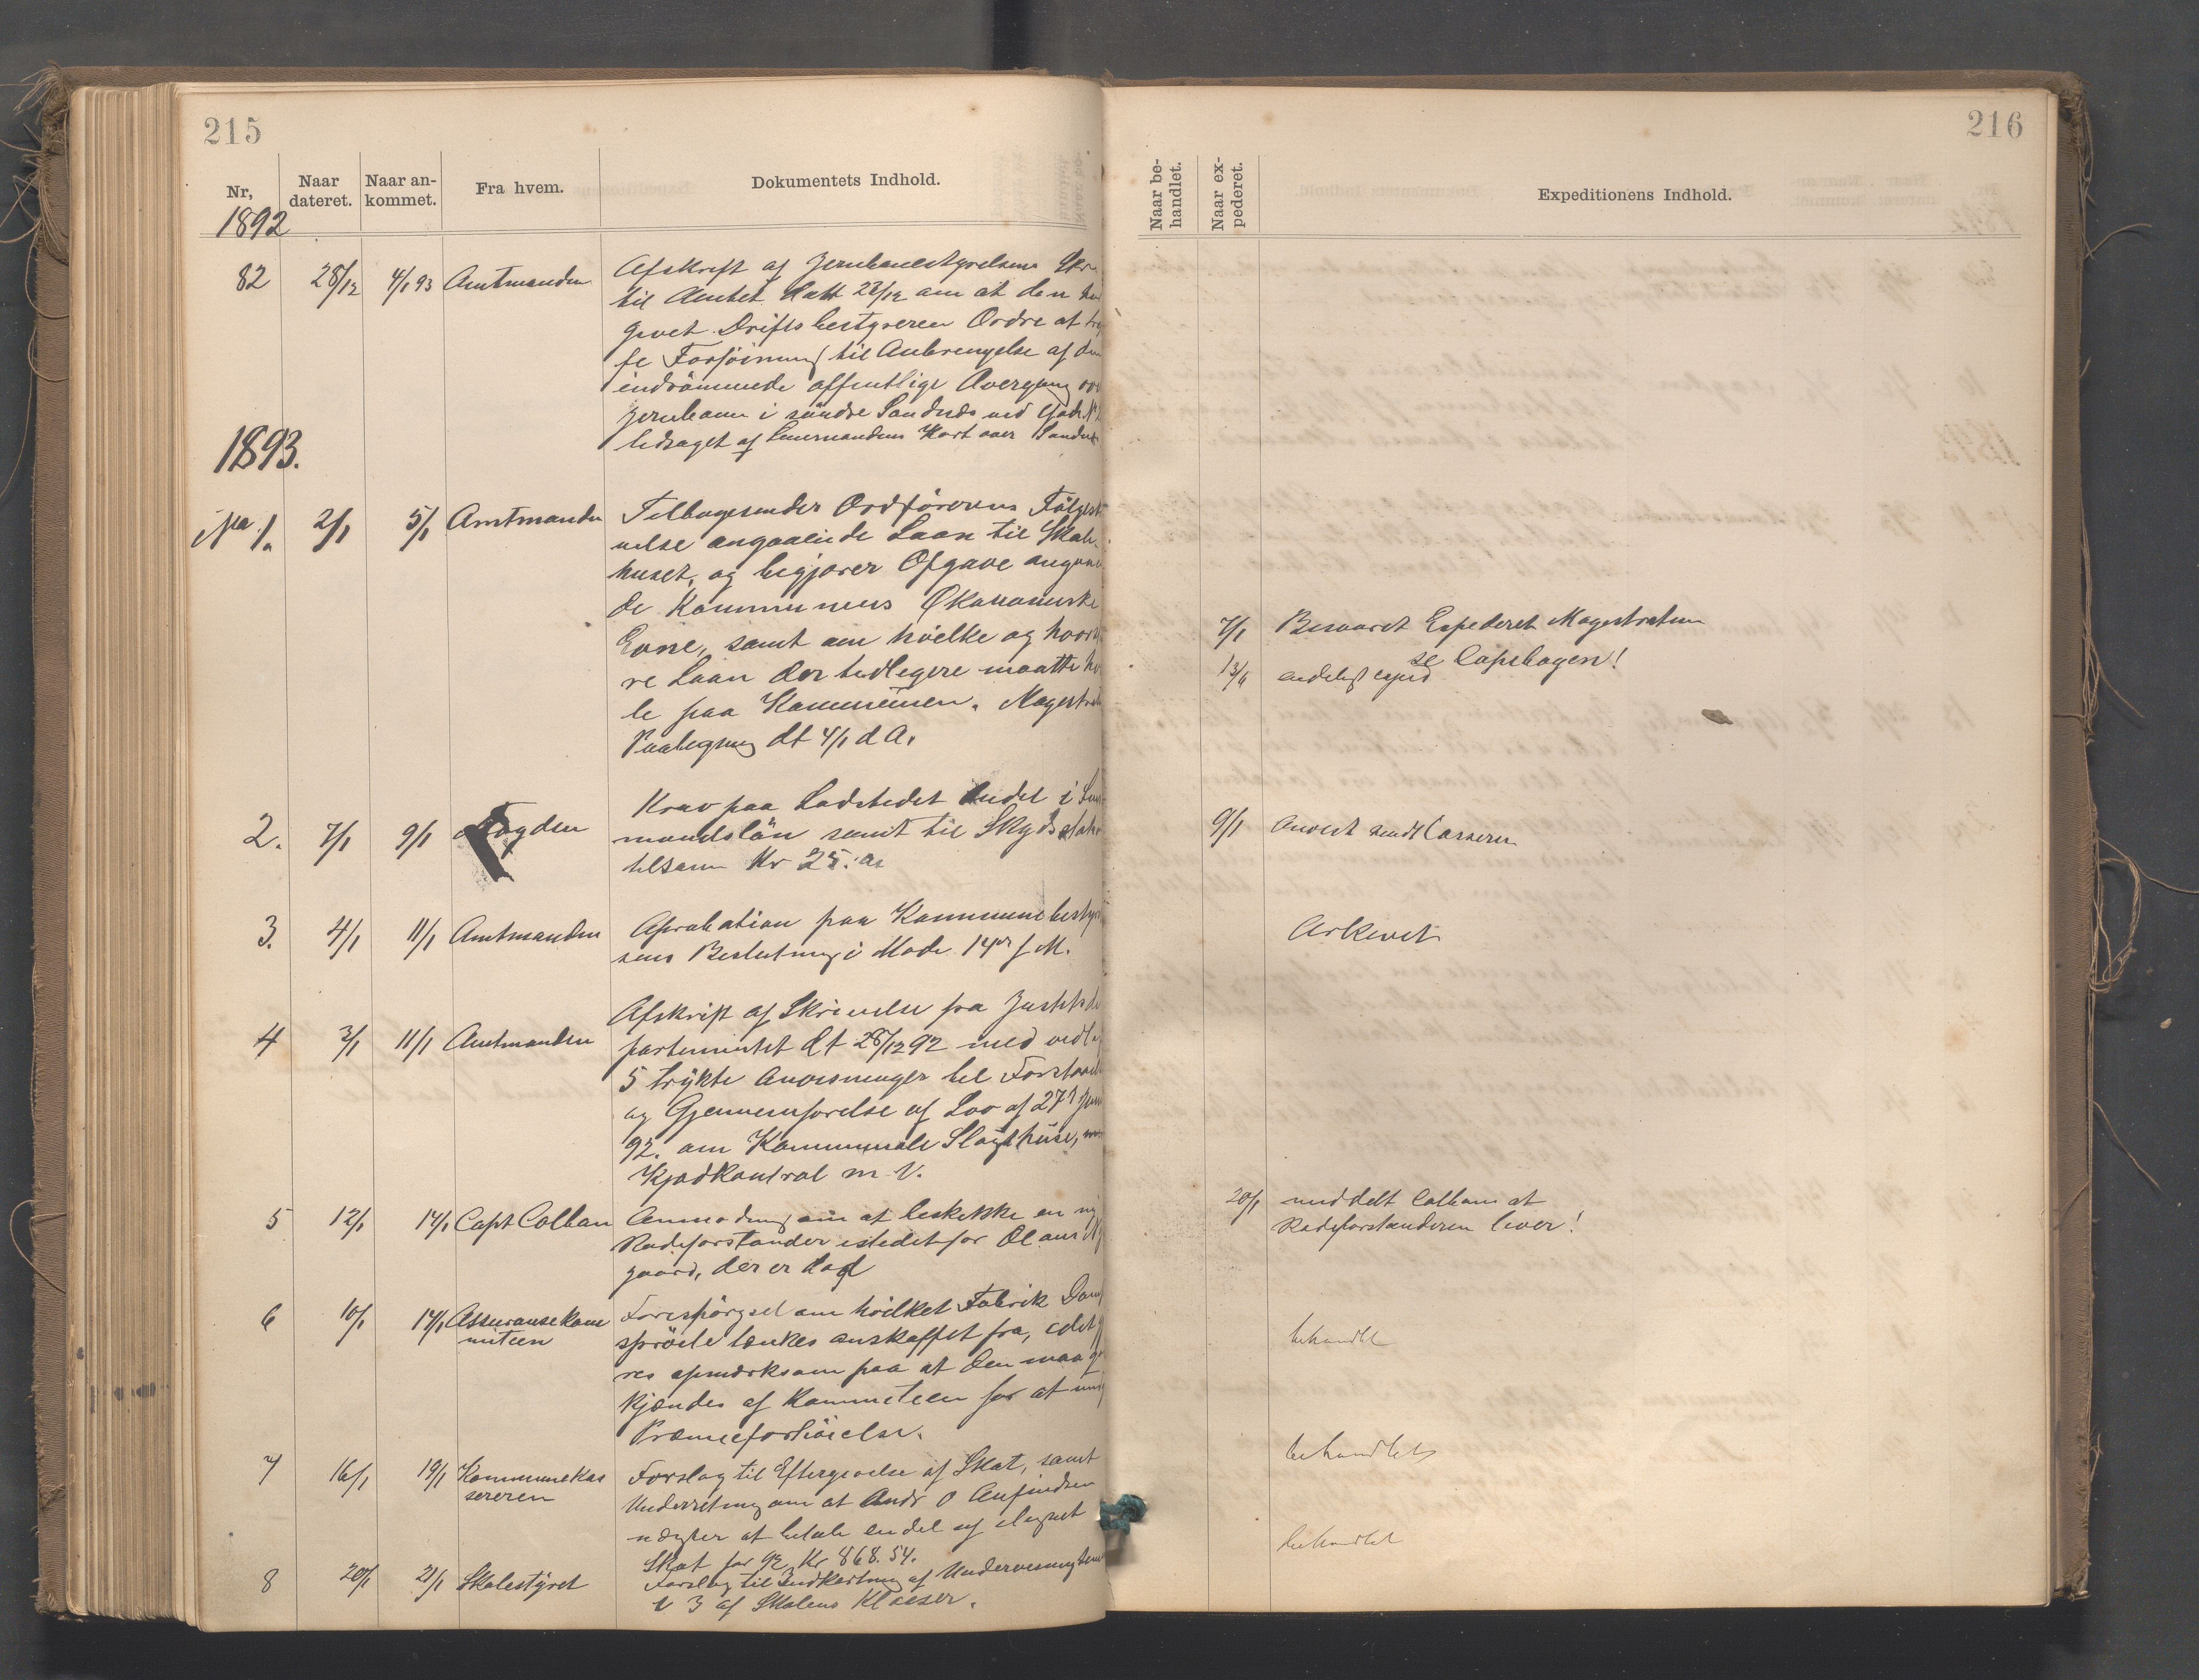 215
Nr,
Naar dateret.
Naar ankommet.
Fra hvem.
Dokumentets Indhold.
1892
82 28/12 4/1 93 Amtmanden
Afskrift af Jernbanestyrelsens
til Amtet datt 28/12 om at den
givet Driftsbestyreren Ordre at
fe Forföining til Anbrengelse af den
indrömmede offentlige Overgang
Jernbanen i söndre Sandnes ved
ledsaget af Lensmandens Kart over
1893.
No 1. 2/1 5/1 Amtmanden
Tilbagesender Ordförerens
velse angaaende Laan til Skole-
huset, og begjærer Opgave
de Kommunens Økonomiske
Evne, samt om hvilke og
re Laan der tidligere maatte
le paa Kommunen.
Paategning dt 4/1 d A.
2. 7/1 9/1 Fogden
Krav paa Ladstedet Andel i
mandslön samt til
tilsam Kr 25.
3. 4/1 11/1 Amtmanden
Aprobation paa
sens Beslutning i Möde 14de f M.
4 3/1 11/1 Amtmanden
Afskrift af Skrivelse fra
partementet dt 28/12 92 med
5 trykte Anvisninger til
og Gjennemförelse af Lov af 27
92. om Kommunale Slagthuse,
Kjødkontrol m V.
5 12/1 14/1 Capt Colban
Anmodning om at beskikke en ny
Rodeforstander istedetfor Olaus
gaard, der er død
6 10/1 14/1 Assuransekom
miteen
Forespörgsel om hvilket Fabrik
spröite tænkes anskaffet fra,
res opmærksom paa at den maa
kjendes af Kommiteen for at
Præmieforhöielse.
7 16/1 19/1 Kommunekas
sereren
Forslag til Eftergivelse af Skat, samt
Underretning om at Andr O
nægter at betale en del af
Skat for 92 Kr 868.54.
8 20/1 21/1 Skolestyret
Forslag til Indkortning af
i 3 af Skolens Klasser.
216
Naar behandlet.
Naar expederet.
Expeditionens Indhold.
7/1 Besvaret Expederet Magistraten
se Copibogen!
endeligt exped
9/1 Anvist sendt Casseren
Arkivet
20/1 meddelt Colban at
Rodeforstanderen lever!
behandlet
behandlet
behandlet